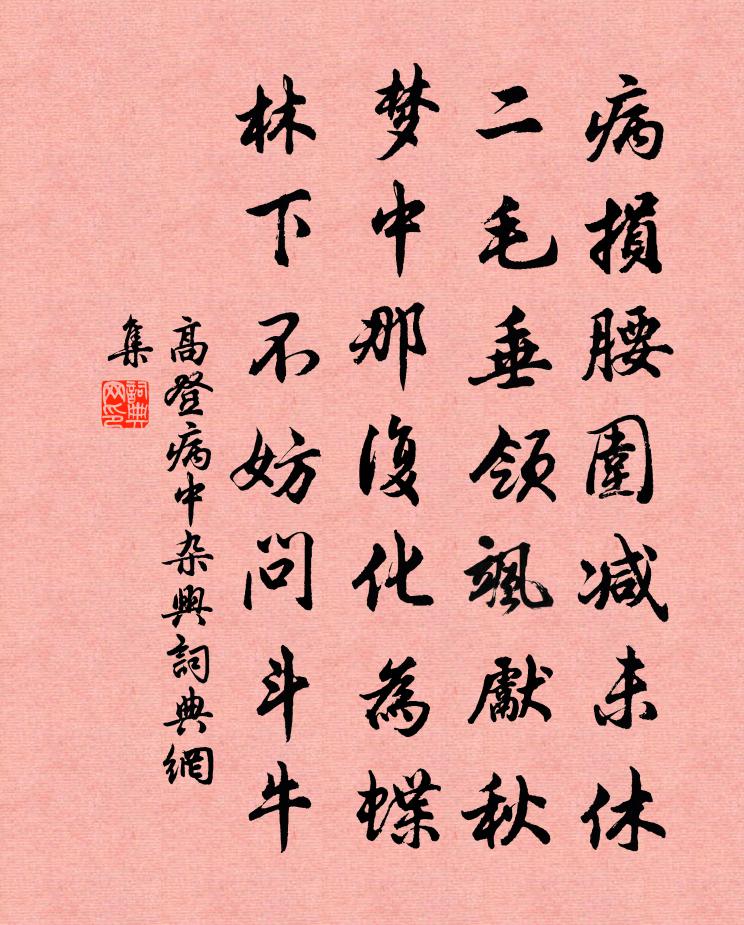 病損腰圍减未休
二毛垂領颯獻秋
梦中那復化為蝶
林下不妨問斗牛
高登病中杂興詞典網
集
詞典
网印